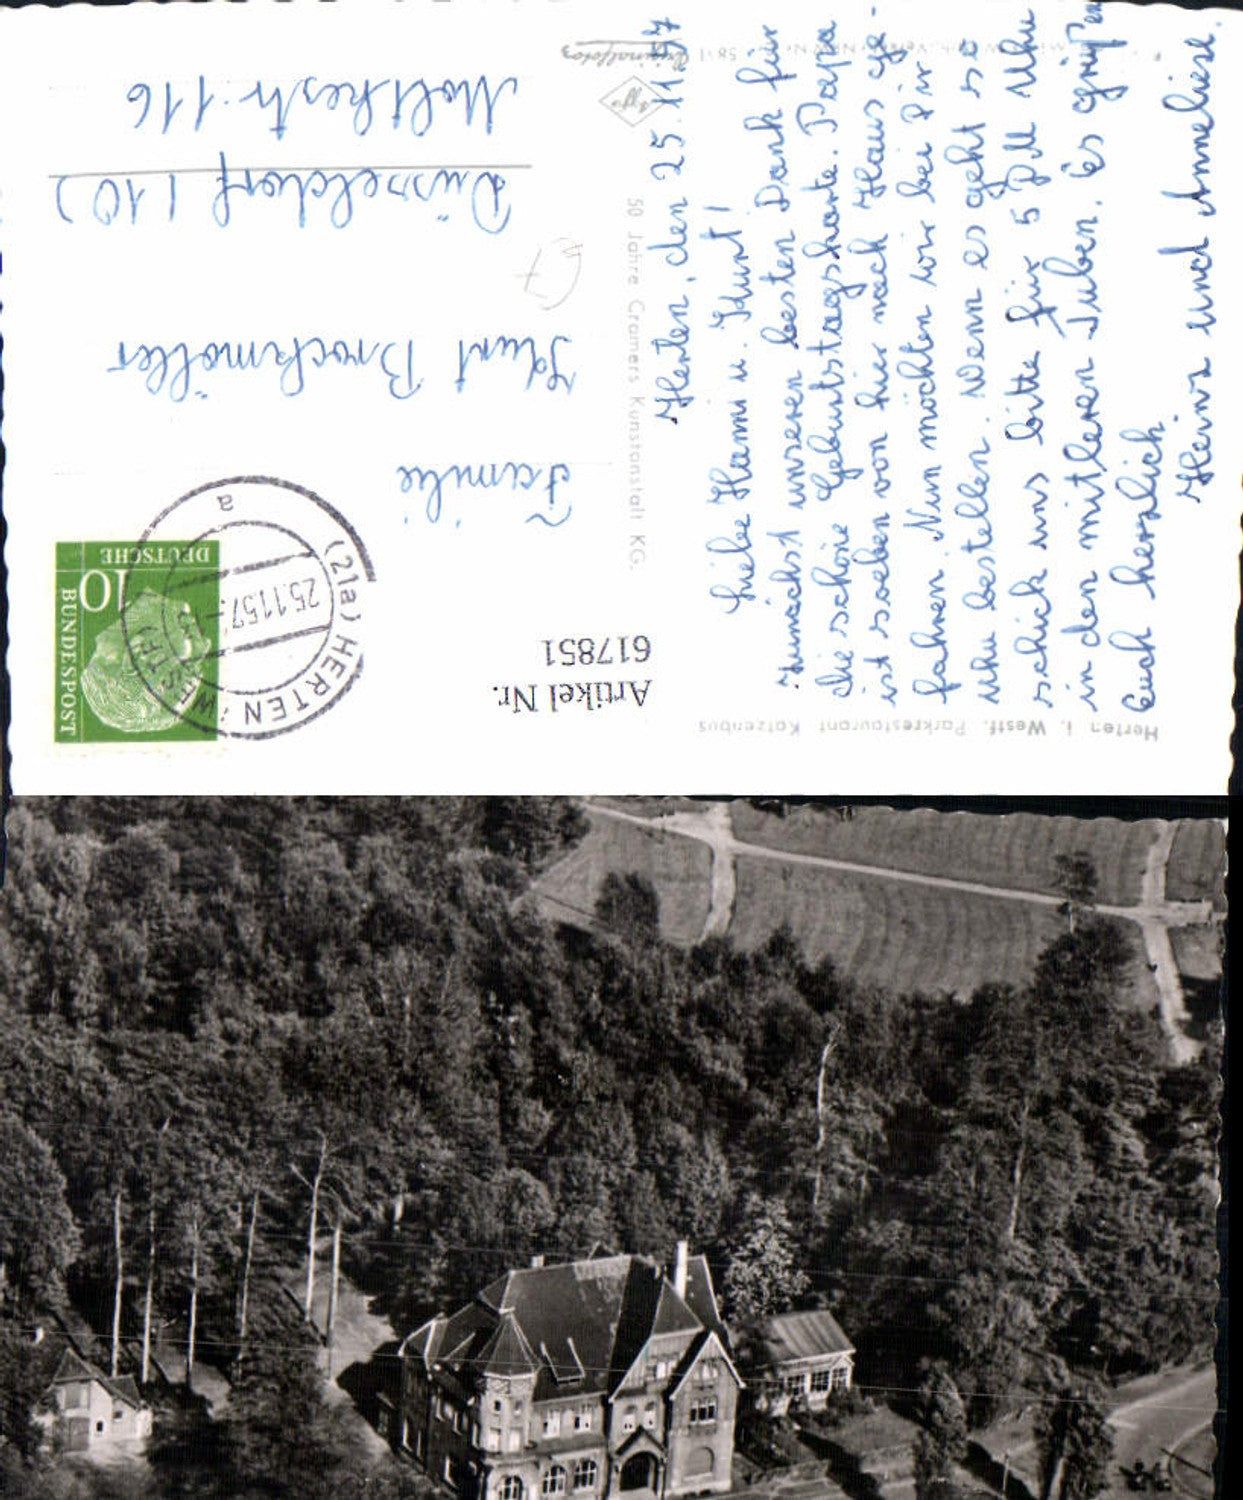 Herten i. Westf. Parkrestaurant Katzenbus
Herten, den 25.11.57
Liebe Hanni u. Kurt!
Zunächst unseren besten Dank für
die schöne Geburtstagskarte. Papa
ist soeben von hier nach Haus ge-
fahren. Nun möchten wir bei Dir
Uhu bestellen. Wenn es geht so
schick uns bitte für 5 DM Uhu
in den mitleren Tuben. Es grüßen
Euch herzlich
Heinz und Anneliese.
50 Jahre Cramers Kunstanstalt KG.
Agfa
Originalfotos
DEUTSCHE
BUNDESPOST
10
(21a) HERTEN (WESTF)
25.11.57
a
Artikel Nr.
617851
57
Familie
Kurt Brockmöller
Düsseldorf (10)
Moltkestr. 116